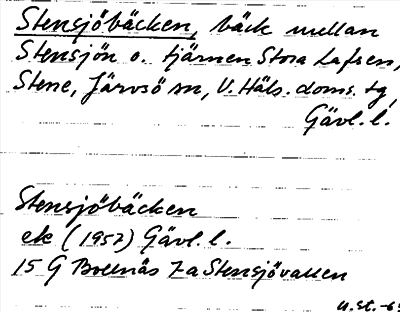 Stensjöbäcken, bäck mellan
Stensjön o. tjärnen Stora Lafsen,
Stene, Järvsö sn, V. Häls. doms. tg,
Gävl. l.
Stensjöbäcken
ek (1957) Gävl. l.
15 G Bollnäs 7a Stensjövallen